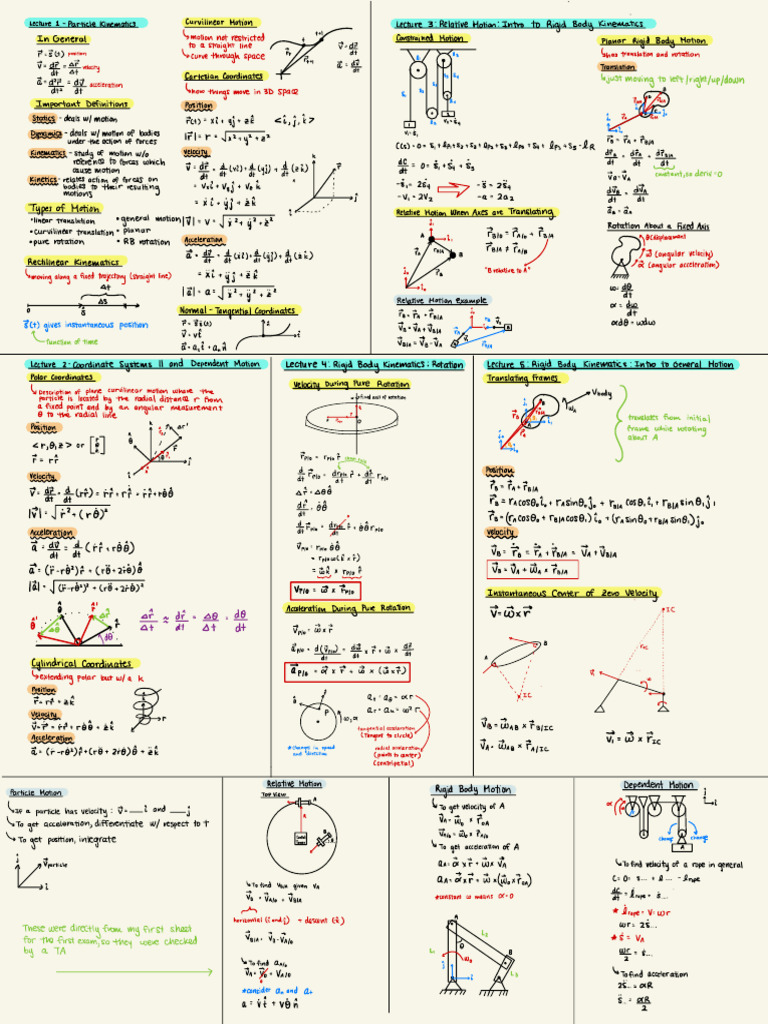 Lecture 1 - Particle Kinematics
In General
r⃗ = s⃗(t) position
v⃗ = dr⃗/dt = Δr⃗/Δt velocity
a⃗ = d²r⃗/dt² = dv⃗/dt acceleration
Important Definitions
Statics - deals w/ motion
- deals w/ motion of bodies
under the action of forces
Kinematics - study of motion w/o
reference to forces which
cause motion
Kinetics - relates action of forces on
bodies to their resulting
motions
Types of Motion
• linear translation
• general motion
• curvilinear translation
• planar
• pure rotation
• RB rotation
Rectilinear Kinematics
↳ moving along a fixed trajectory (straight line)
Δt
ΔS
0
s⃗
s⃗(t) gives instantaneous position
function of time
Curvilinear Motion
↳ motion not restricted
to a straight line
↳ curve through space
t
t+1
v⃗ = dr⃗/dt
a⃗ = dv⃗/dt
Cartesian Coordinates
↳ how things move in 3D space
Position
r⃗(t) = xî + yĵ + zk̂ <î, ĵ, k̂>
|r⃗| = √x² + y² + z²
Velocity
|v⃗| = v = √ẋ² + ẏ² + ż²
Acceleration
= ẍî + ÿĵ + z̈k̂
|a⃗| = √ẍ² + ÿ² + z̈²
Normal - Tangential Coordinates
Lecture 3: Relative Motion: Intro to Rigid Body Kinematics
Constrained Motion
dc/dt = 0 = ṡ₁ + ṡ₂ + ṡ₃
Relative Motion When Axes are Translating
r⃗B/O = r⃗A/O + r⃗B/A
"B relative to A"
Relative Motion Example
r⃗B = r⃗A + r⃗B/A
v⃗B = v⃗A + v⃗B/A
v⃗B/A = v⃗B - v⃗A
Planar Rigid Body Motion
↳ has translation and rotation
Translation
↳ just moving to left/right/up/down
r⃗B = r⃗A + r⃗B/A
dr⃗B/dt = dr⃗A/dt + dr⃗B/A/dt
constant, so deriv = 0
v⃗B = v⃗A
dv⃗B/dt = dv⃗A/dt
a⃗B = a⃗A
Rotation About a Fixed Axis
θ (displacement)
ω⃗ (angular velocity)
α⃗ (angular acceleration)
ω = dθ/dt
α = dω/dt
αdθ = ωdω
Lecture 2: Coordinate Systems II and Dependent Motion
Polar Coordinates
↳ Description of plane curvilinear motion where the
particle is located by the radial distance r from
a fixed point and by an angular measurement
θ to the radial line
Position
< r, θ, z > or
r⃗ = rr̂
Velocity
v⃗ = dr⃗/dt = d/dt (rr̂) = ṙr̂ + rṙ̂ = ṙr̂ + rθ̇θ̂
|v⃗| = √ṙ² + (rθ̇)²
Acceleration
a⃗ = dv⃗/dt = d/dt (ṙr̂ + rθ̇θ̂)
a⃗ = (r̈ - rθ̇²)r̂ + (rθ̈ + 2ṙθ̇)θ̂
|a⃗| = √(r̈ - rθ̇²)² + (rθ̈ + 2ṙθ̇)²
Δr̂/Δt ≈ dr̂/dt = Δθ/Δt = dθ/dt
Cylindrical Coordinates
↳ extending polar but w/ a k
Position
r⃗ = rr̂ + zk̂
Velocity
v⃗ = ṙ⃗ = ṙr̂ + rθ̇θ̂ + żk̂
Acceleration
a⃗ = (r̈ - rθ̇²)r̂ + (rθ̈ + 2ṙθ̇)θ̂ + z̈k̂
Lecture 4: Rigid Body Kinematics: Rotation
Velocity During Pure Rotation
fixed axis of rotation
r⃗P/O = rP/O r̂
chain rule
Δr̂ = Δθθ̂
dr̂/dt = θ̇θ̂
v⃗P/O = ω⃗ × r⃗P/O
Acceleration During Pure Rotation
v⃗P/O = ω⃗ × r⃗
a⃗P/O = α⃗ × r⃗ + ω⃗ × (ω⃗ × r⃗)
P
ω, α
* change in speed
and direction
tangential acceleration
(tangent to circle)
radial acceleration
(points to center)
(centripetal)
Lecture 5: Rigid Body Kinematics: Intro to General Motion
Translating Frames
v⃗body
translates from initial
frame while rotating
about A
Position
r⃗B = r⃗A + r⃗B/A
r⃗B = rA cosθ₀ î₀ + rA sinθ₀ ĵ₀ + rB/A cosθ₁ î₁ + rB/A sinθ₁ ĵ₁
r⃗B = (rA cosθ₀ + rB/A cosθ₁) î₀ + (rA sinθ₀ + rB/A sinθ₁) ĵ₀
Velocity
v⃗B = ṙ⃗B = ṙ⃗A + ṙ⃗B/A = v⃗A + v⃗B/A
v⃗B = v⃗A + ω⃗A × r⃗B/A
Instantaneous Center of Zero Velocity
v⃗ = ω⃗ × r⃗
A
B
IC
IC
rIC
v⃗B = ω⃗AB × r⃗B/IC
v⃗A = ω⃗AB × r⃗A/IC
v⃗₁ = ω⃗ × r⃗IC
Particle Motion
↳ If a particle has velocity: v⃗ = __ i and __ j
↳ To get acceleration, differentiate w/ respect to t
↳ To get position, integrate
v⃗particle
These were directly from my first sheet
for the first exam, so they were checked
by a TA
Relative Motion
Top View
A
R
B
↳ To find vB/A given vA
horizontal (i and j) + descent (k)
v⃗B/A = v⃗B - v⃗A
↳ To find aA/O
* consider an and at
a = v̇t̂ + vθ̇n̂
Rigid Body Motion
↳ To get velocity of A
↳ To get acceleration of A
* constant ω means α = 0
A
L₂
L₁
θ
B
L₃
Dependent Motion
change
change
A
↳ To find velocity of a rope in general
* l̇rope = v = ωr
ωr = 2ṡ...
* ṡ = vA
ωr/2 = ṡ...
↳ To find acceleration
2s̈... = αR
s̈... = αR/2